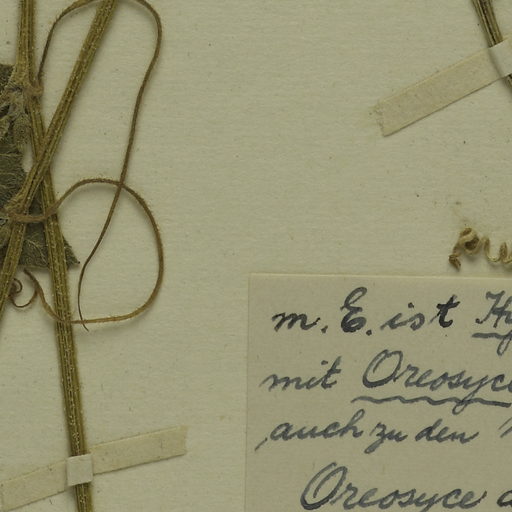 m. E. ist Hy
mit Oreosyce
auch zu den
Oreosyce